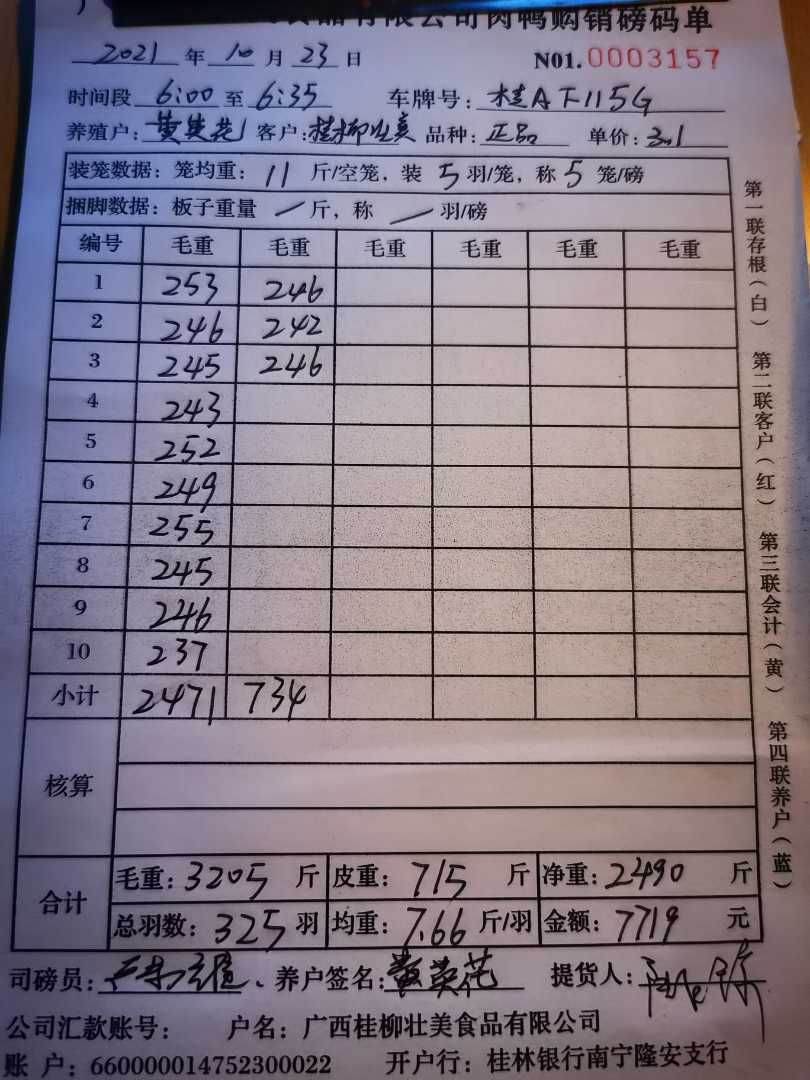 食品有限公司肉鸭购销磅码单
2021 年 10 月 23 日 N01.0003157
时间段 6:00 至 6:35 车牌号: 桂AF115G
养殖户: 黄英花 客户: 桂柳壮美 品种: 正品 单价: 3.1
装笼数据: 笼均重: 11 斤/空笼, 装 5 羽/笼, 称 5 笼/磅
捆脚数据: 板子重量 / 斤, 称 / 羽/磅
编号 毛重 毛重 毛重 毛重 毛重 毛重
1 253 246
2 246 242
3 245 246
4 243
5 252
6 249
7 255
8 245
9 246
10 237
小计 2471 734
核算
合计
毛重: 3205 斤 皮重: 715 斤 净重: 2490 斤
总羽数: 325 羽 均重: 7.66 斤/羽 金额: 7719 元
司磅员: 养户签名: 黄英花 提货人:
公司汇款账号: 户名: 广西桂柳壮美食品有限公司
账 户: 660000014752300022 开户行: 桂林银行南宁隆安支行
第一联存根(白) 第二联客户(红) 第三联会计(黄) 第四联养户(蓝)